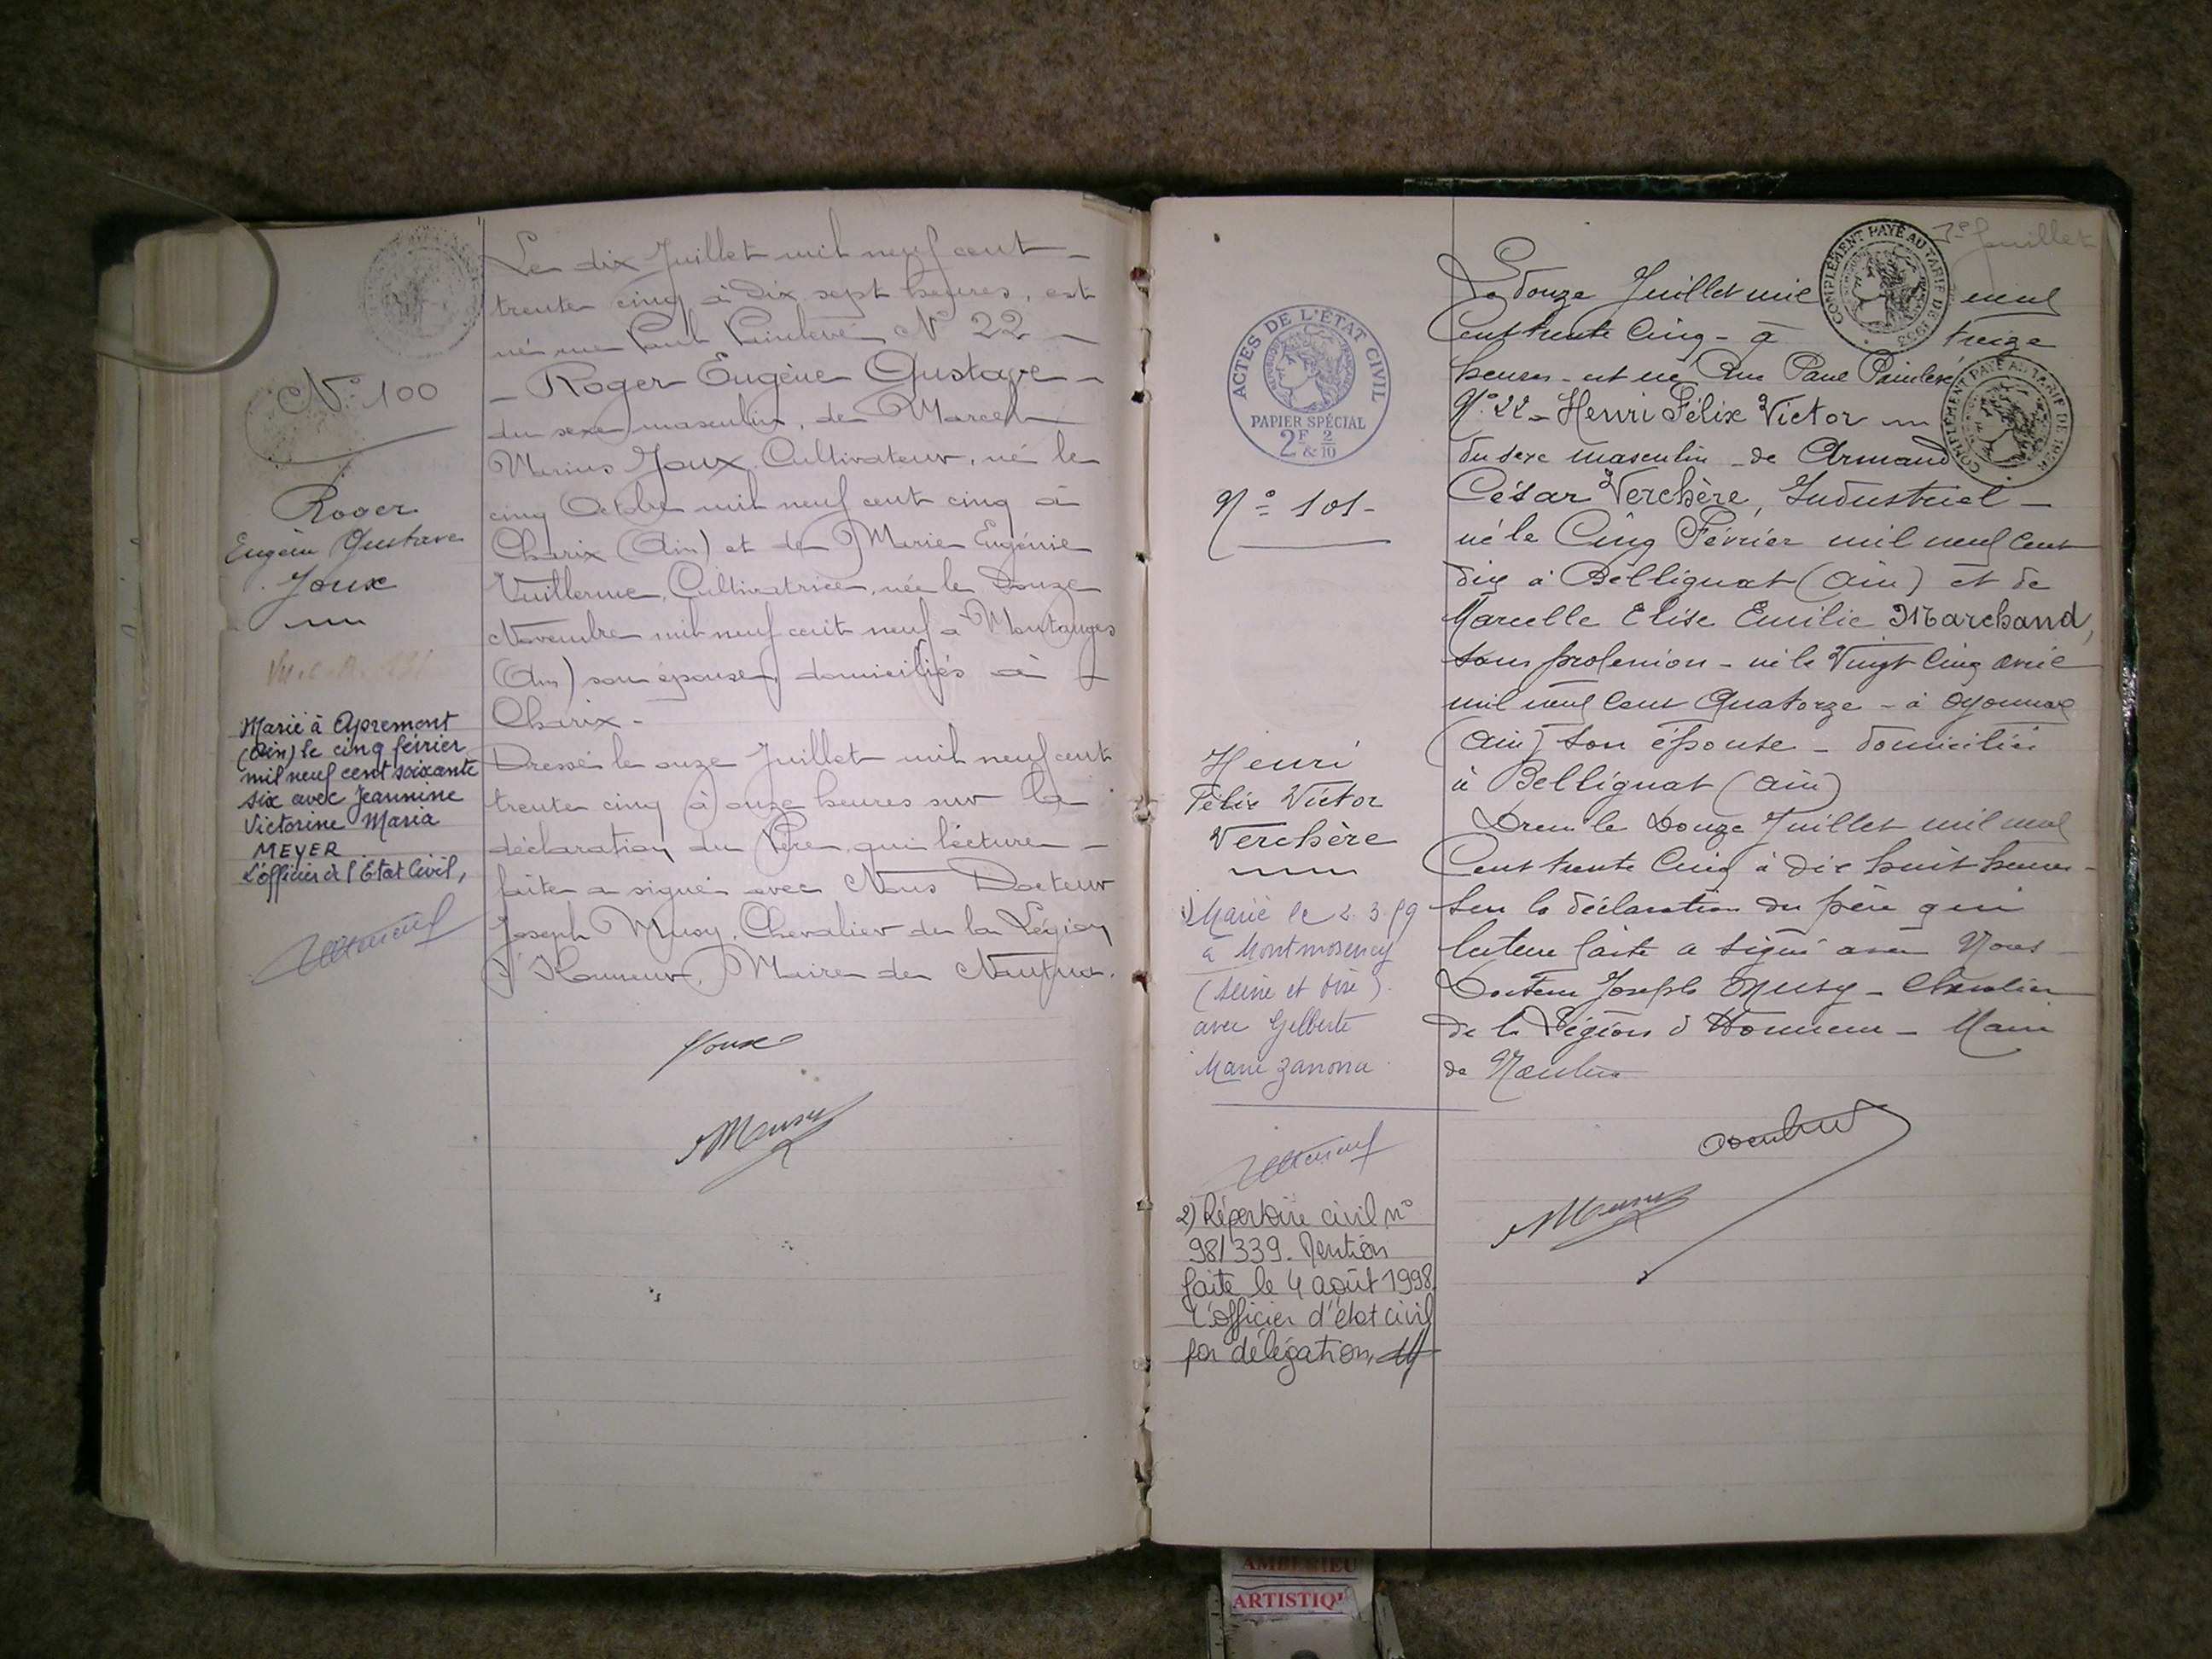 Le dix Juillet mil neuf cent
trente cinq à dix sept heures, est
né rue Paul Painlevé N° 22
Roger Eugène Gustave
du sexe masculin, de Marcel
Marius Joux, Cultivateur, né le
cinq Octobre mil neuf cent cinq à
Charix (Ain) et de Marie Eugénie
Vuillerme, Cultivatrice, née le Douze
Novembre mil neuf cent neuf à Montanges
(Ain) son épouse, domiciliés à
Charix.
Dressé le onze Juillet mil neuf cent
trente cinq à onze heures sur la
déclaration du Père, qui lecture
faite a signé avec Nous Docteur
Joseph Musy, Chevalier de la Légion
d'Honneur, Maire de Nantua.
Joux
Musy
N° 100
Roger
Eugène Gustave
Joux
Marié à Apremont
(Ain) le cinq février
mil neuf cent soixante
six avec Jeannine
Victorine Maria
MEYER
L'officier de l'Etat Civil,
7e feuillet
Le douze Juillet mil neuf
Cent trente Cinq - à treize
heures - est né Rue Paul Painlevé
N° 22 - Henri Félix Victor
du sexe masculin - de Armand
César Verchère, Industriel -
né le Cinq Février mil neuf Cent
dix à Bellignat (Ain) et de
Marcelle Elise Emilie Marchand,
sans profession - née le Vingt Cinq avril
mil neuf Cent Quatorze - à Oyonnax
(Ain) son épouse - domiciliés
à Bellignat (Ain)
Dressé le Douze Juillet mil neuf
Cent trente Cinq à dix huit heures -
sur la déclaration du père qui
lecture faite a signé avec Nous -
Docteur Joseph Musy - Chevalier
de la Légion d'Honneur - Maire
de Nantua
Musy
ACTES DE L'ÉTAT CIVIL
PAPIER SPÉCIAL
2F & 2/10
COMPLÉMENT PAYÉ AU TARIF DE
COMPLÉMENT PAYÉ AU TARIF DE
N° 101-
Henri
Félix Victor
Verchère
1) Marié le 2.3.59
à Montmorency
(Seine et Oise).
avec Gilberte
Marie Zanona
2) Répertoire civil n°
98/339. Mention
faite le 4 août 1998.
L'officier d'état civil
par délégation,
AMBERIEU
ARTISTIQ